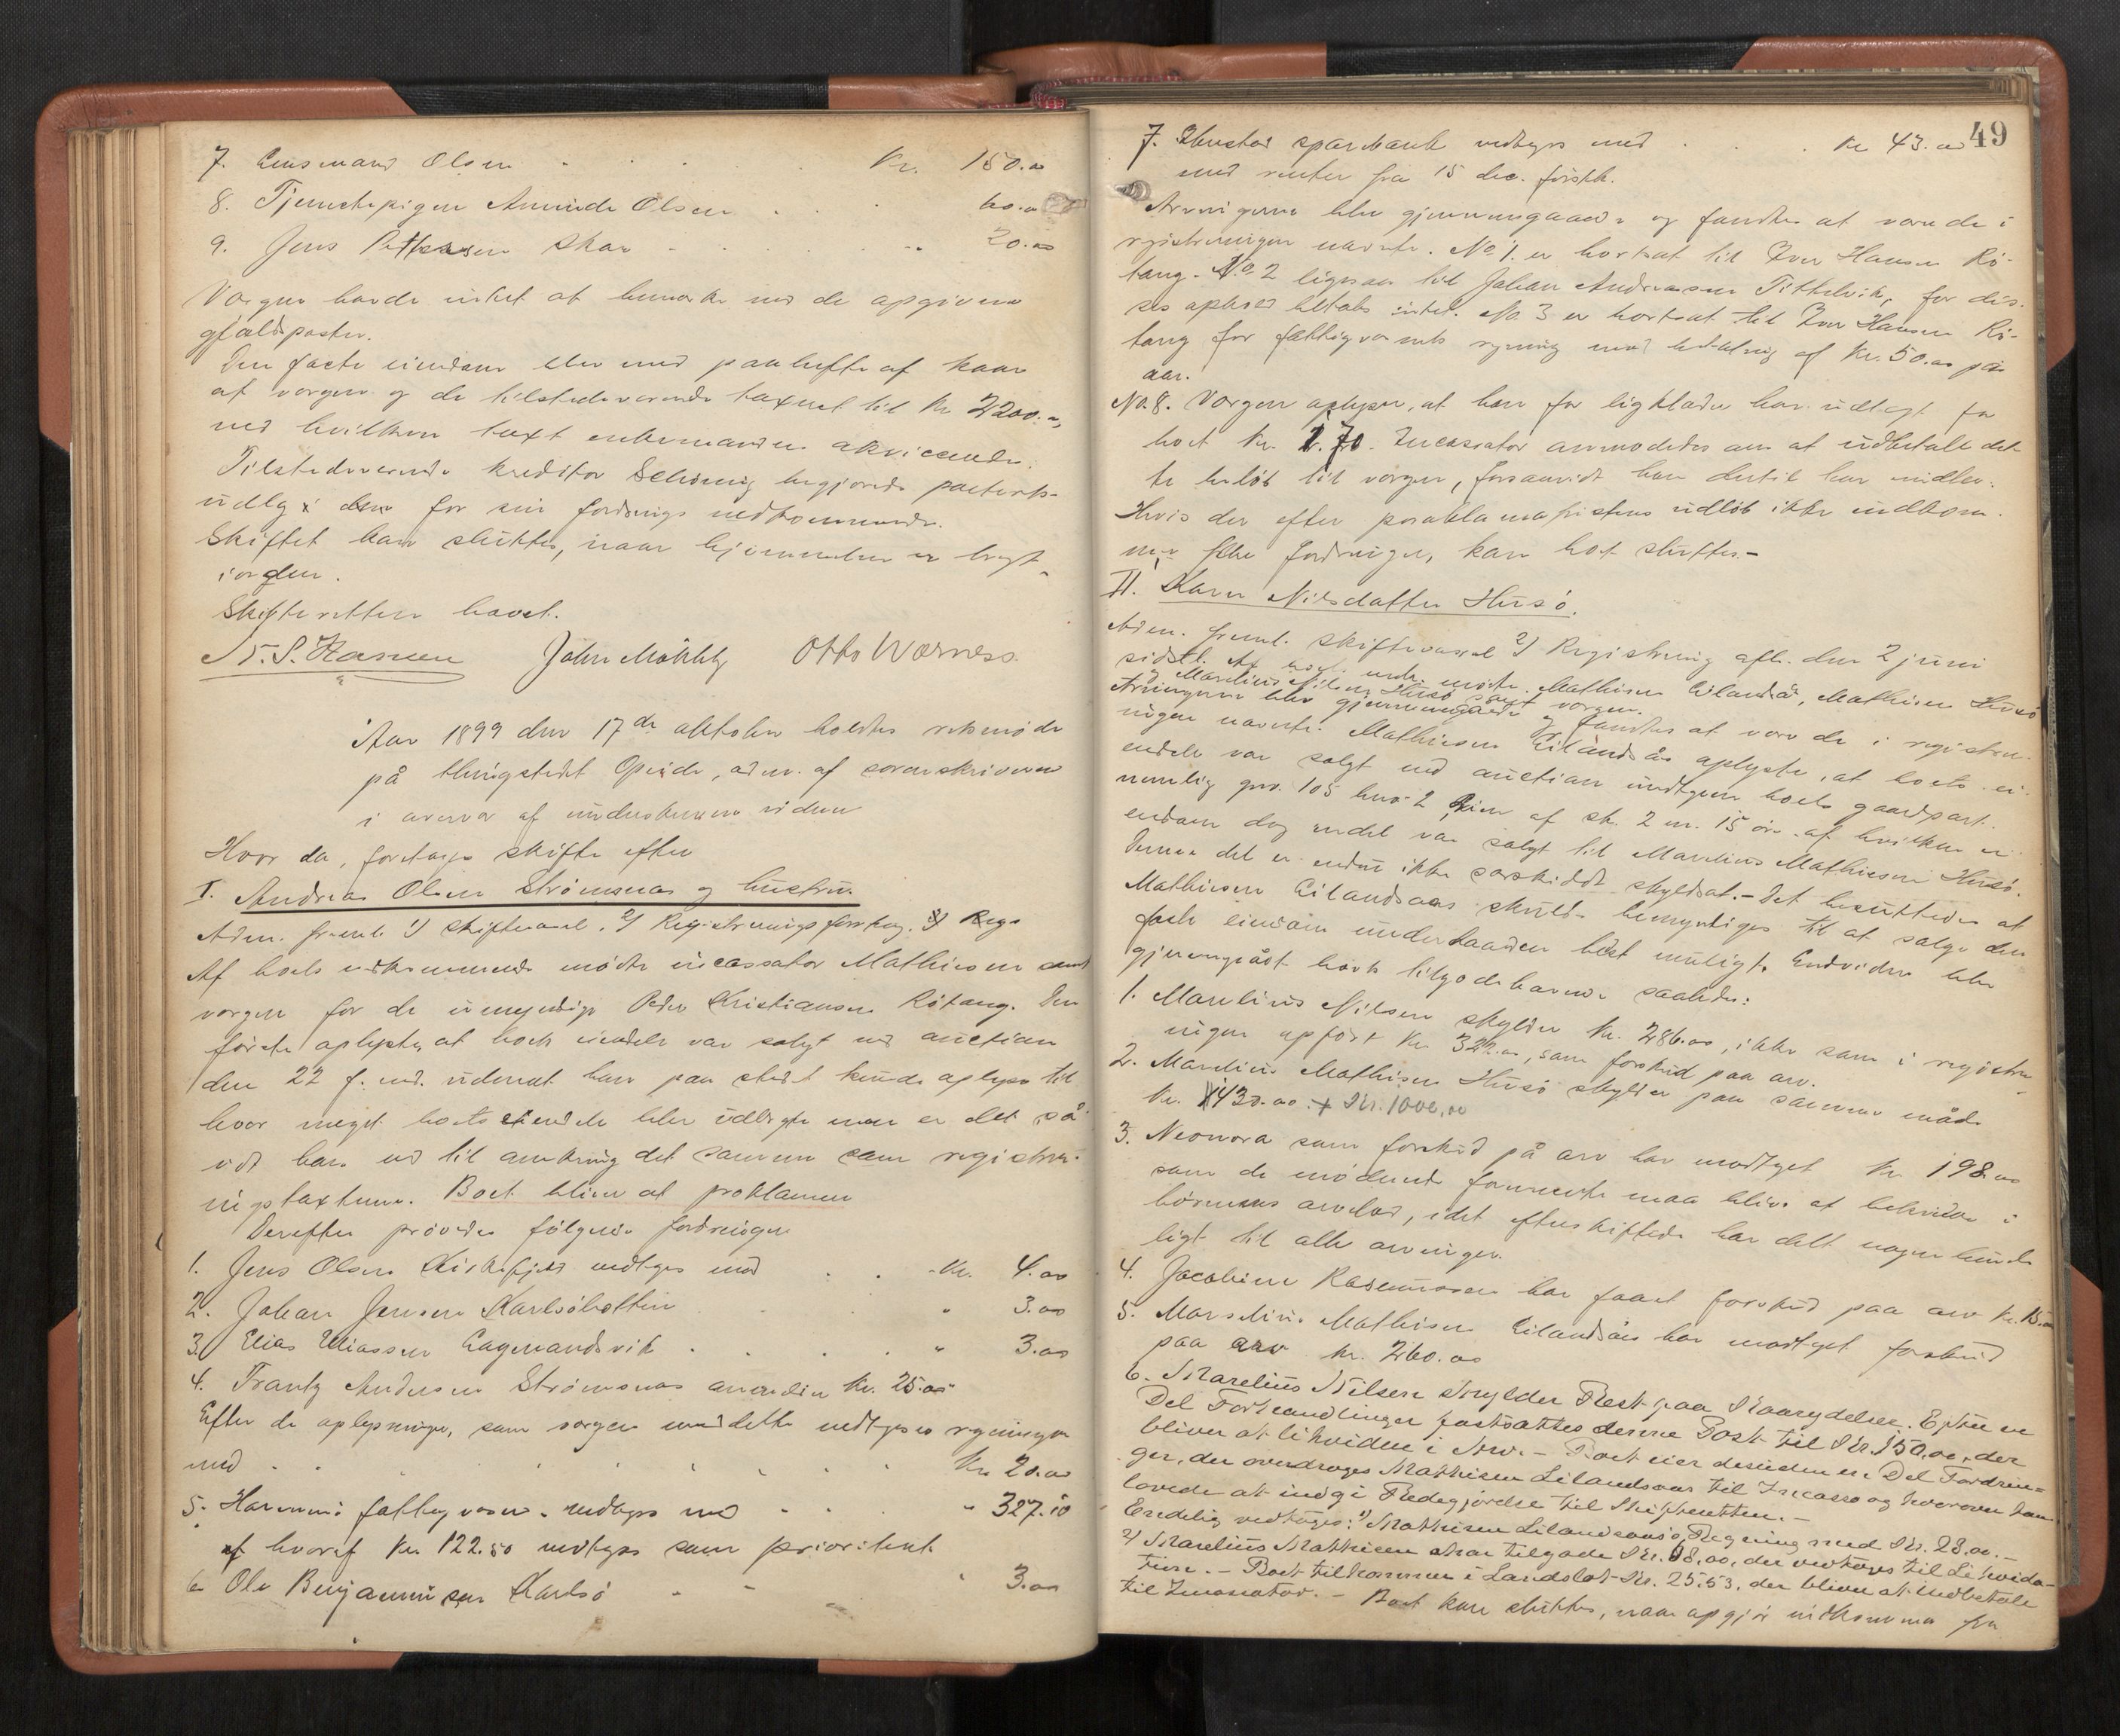 7. Lensmand Olsen . . . Kr. 150.00
8. Tjenestepigen Aminde Olsen . . . 60.00
9. Jens Pettersen Skar . . . 20.00
Værgen havde intet at bemærke ved de opgivne
gjældsposter.
Den faste eiendom blev med paaheftet af kaar
af værgen og de tilstedeværende taxeret til Kr. 2200.00,
ved hvilken taxt enkemanden akviescerede.
Tilstedeværende kreditor begjærede
udlæg i den for sin fordrings vedkommende.
Skiftet kan sluttes, naar hjemmelen er bragt
i orden.
Skifteretten hævet.
N. S. Hansen John Otto Wærness
Aar 1899 den 17de oktober holdtes retsmøde
på thingstedet Opeide, adm. af sorenskriveren
i overvær af undertegnede vidner
Hvor da, foretoges skifte efter
I. Andreas Olsen Strömsnæs og hustru.
Adm. freml. 1) skifteanmel. 2) Registreringsforretning. 3) Regs
Af boets vedkommende mødte incassator Mathiesen samt
værgen for de umyndige Peder Kristiansen Rötang. Den
første oplyste, at boets eiendele var solgt ved auction
den 22 f. md. uden at han paa stedet kunde oplyse til
hvor meget boets eiendele blev udbragte men er det så
vidt han ved til omkring det samme som registre-
ringstaxterne. Boet bliver at proklamere
Derefter prøvedes følgende fordringer
1. Jens Olsen Kirkfjord vedtages med . . Kr. 4.00
2. Johan Jensen Karlsöbotten . . " 3.00
3. Elias Eliassen Lagmandsvik . . . " 3.00
4. Frantz Andersen Strömsnæs anmelder Kr. 25.00
Efter de oplysninger, som værgen meddelte vedtages regningen
med . . . . . . . Kr. 20.00
5. Hammerö fattigvæsen vedtages med . . " 327.10
af hvoraf Kr. 122.50 vedtages som prioriteret
6. Ole Benjaminsen Karlsö . . " 3.00
49
7. sparebank vedtages med . . . Kr 43.00
med renter fra 15 dec. førstk.
Arvingerne blev gjennemgaaede og fandtes at være de i
registreringen nævnte. No. 1. er bortsat til Iver Hansen Rö-
tang. No. 2 ligesaa til Johan Andreassen Tittelvik, for dis-
ses ophold betales intet. No. 3 er bortsat til Iver Hansen Rö-
tang for fattigvæsenets regning mod betaling af Kr. 50.00 pr.
aar.
No. 8. Værgen oplyser, at han for ligklæder har udlagt for
boet Kr. 1.70. Incassator anmodedes om at udbetale det-
te beløb til værgen, forsaavidt han dertil har midler.
Hvis der efter proklamafristens udløb ikke indkom-
mer flere fordringer, kan boet sluttes.-
II. Karen Nilsdatter Husö.
Adm. freml. skifteanmel 2) Registrering afh. den 2 juni
sidstl. Af boets vedk. mødte Mathisen Eilandsår, Mathisen Husö
og Marelius Nilsen Husö samt værgen.
Arvingerne blev gjennemgåede og fandtes at være de i registre-
ringen nævnte. Mathiesen Eilandsår oplyste, at boets ei-
endele var solgt ved auction undtagen boets gaardpart
nemlig gno. 105 bno. 2 af sk. 2 m. 15 øre af hvilken ei-
endom dog en del var solgt til Marelius Mathiesen Husö.
Denne del er endnu ikke særskildt skyldsat. - Det besluttedes at
Mathiesen Eilandsaas skulde bemyndiges til at sælge den
faste eiendom underhaanden bedst muligt. Endvidere blev
gjennemgået boets tilgodehavende saaledes:
1. Marelius Nilsen skylder Kr. 286.00, ikke som i registre-
ringen opført Kr. 322.00, som forskud paa arv.
2. Marelius Mathisen Husö skylder paa samme måde
Kr. 1430.00. + Kr. 1000,00
3. Neonora som forskud på arv har modtaget Kr. 198.00
som de mödende formente maa blive at likvidere i
børnenes arvelod, idet efterskiftede har delt nogenlunde
ligt til alle arvinger.
4. Jacobine Rasmussen har faaet forskud paa arv Kr. 15.00
5. Marselius Mathisen Eilandsår har modtaget forskud
paa arv Kr. 260.00
6. Marelius Nilsen skylder Rest paa Kaarydelser. Efter en
Del Forhandlinger fastsattes denne Post til Kr. 150,00, der
bliver at likvidere i Arv. - Boet eier desuden en Del Fordrin=
ger, der overdroges Mathisen Eilandsaar til Incasso og hvorover han
lovede at indgi Redegjørelse til Skifteretten. -
Endelig vedtoges: 1) Mathisen Eilandsaas's Regning med Kr. 28.00. -
2) Marelius Mathisen har tilgode Kr. 18,00, der vedtoges til Likvida-
tion. - Boet tilkommer i Landslot Kr. 25.53, der bliver at indbetale
til Incassator. - Boet kan sluttes, naar opgjør indkommer fra